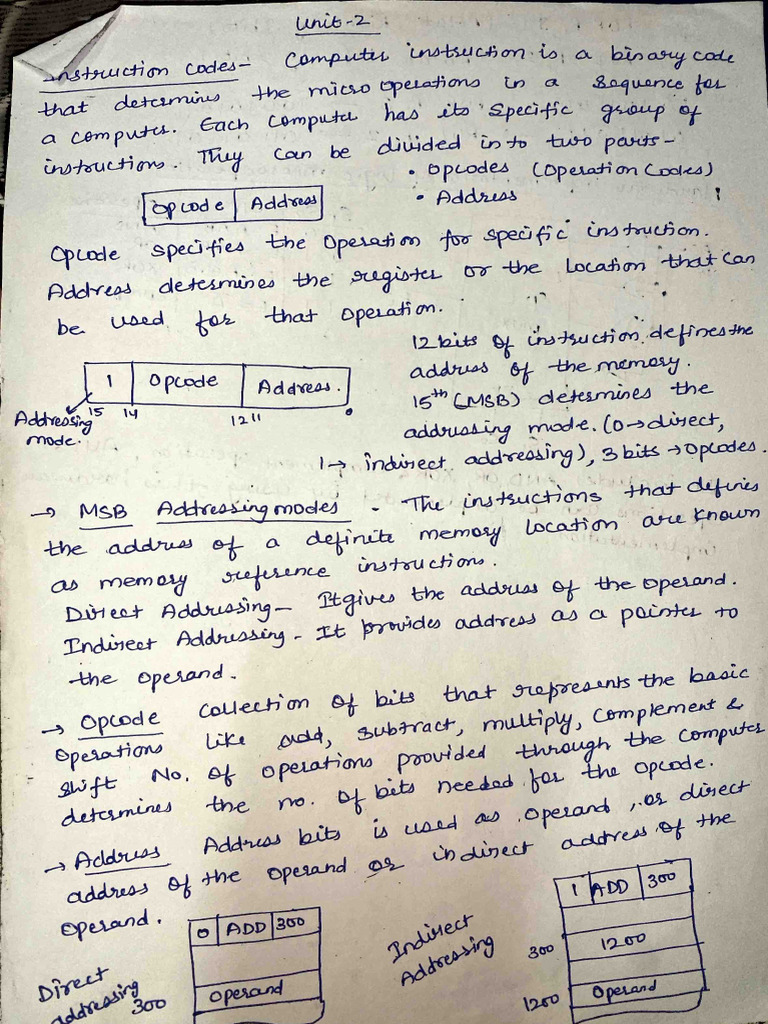 Unit-2
Instruction codes- Computer instruction is a binary code
that determines the micro operations in a sequence for
a computer. Each computer has its specific group of
instructions. They can be divided in to two parts-
• Opcodes (Operation Codes)
• Address
Opcode Address
Opcode specifies the Operation for specific instruction.
Address determines the register or the location that can
be used for that operation.
12 bits of instruction defines the
address of the memory.
15th (MSB) determines the
addressing mode. (0→direct,
1→ indirect addressing), 3 bits → Opcodes.
1 Opcode Address.
15 14 12 11
Addressing
mode.
→ MSB Addressing modes - The instructions that defines
the address of a definite memory location are known
as memory reference instructions.
Direct Addressing- It gives the address of the operand.
Indirect Addressing - It provides address as a pointer to
the operand.
→ Opcode collection of bits that represents the basic
Operations like add, subtract, multiply, complement &
shift No. of operations provided through the computer
determines the no. of bits needed for the opcode.
→ Address Address bits is used as operand, or direct
address of the operand or indirect address of the
operand.
Direct
addressing
0 ADD 300
300 Operand
Indirect
Addressing
1 ADD 300
300 1200
1200 Operand